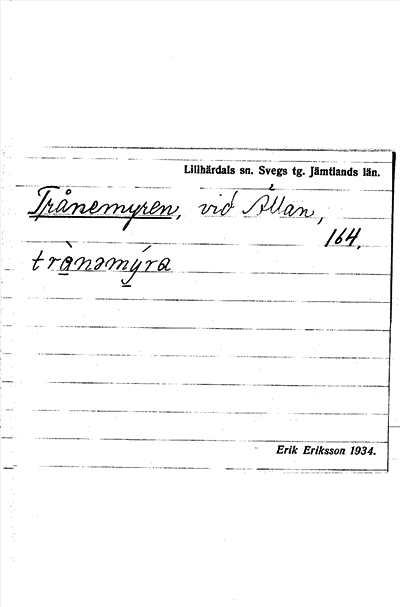 Lillhärdals sn. Svegs tg. Jämtlands län.
Trånemyren, vid Ållan,
164.
trànəmýra
Erik Eriksson 1934.